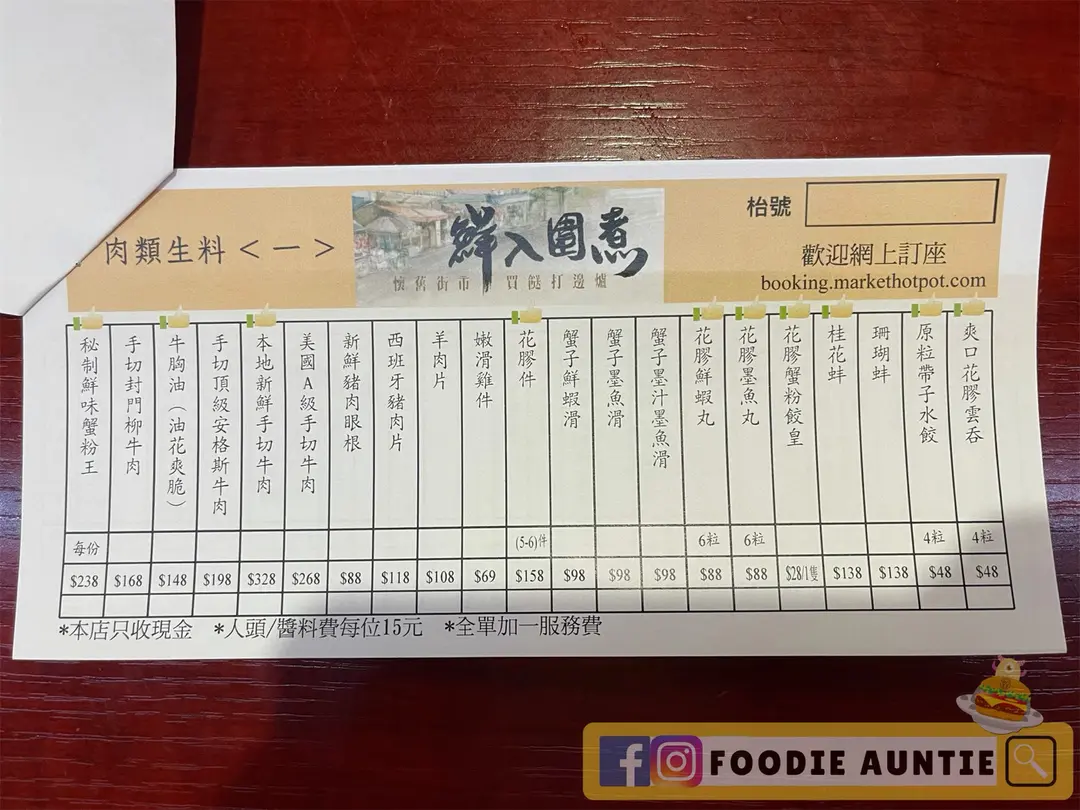 肉類生料＜一＞
鮮入圍煮
懷舊街市 買餸打邊爐
枱號
歡迎網上訂座
booking.markethotpot.com
秘制鮮味蟹粉王 每份 $238
手切封門柳牛肉 $168
牛胸油（油花爽脆） $148
手切頂級安格斯牛肉 $198
本地新鮮手切牛肉 $328
美國A級手切牛肉 $268
新鮮豬肉眼根 $88
西班牙豬肉片 $118
羊肉片 $108
嫩滑雞件 $69
花膠件 (5-6)件 $158
蟹子鮮蝦滑 $98
蟹子墨魚滑 $98
蟹子墨汁墨魚滑 $98
花膠鮮蝦丸 6粒 $88
花膠墨魚丸 6粒 $88
花膠蟹粉餃皇 $28/1隻
桂花蚌 $138
珊瑚蚌 $138
原粒帶子水餃 4粒 $48
爽口花膠雲吞 4粒 $48
*本店只收現金 *人頭/醬料費每位15元 *全單加一服務費
FOODIE AUNTIE